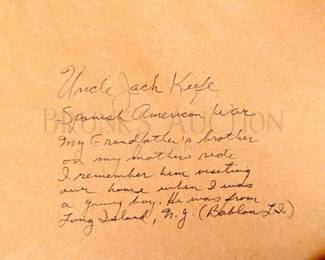 Uncle Jack Keefe
Spanish American War
My Grandfather's brother
on my mothers side
I remember him visiting
our home when I was
a young boy. He was from
Long Island, N.Y. (Bablon L.I.)
AUCTION